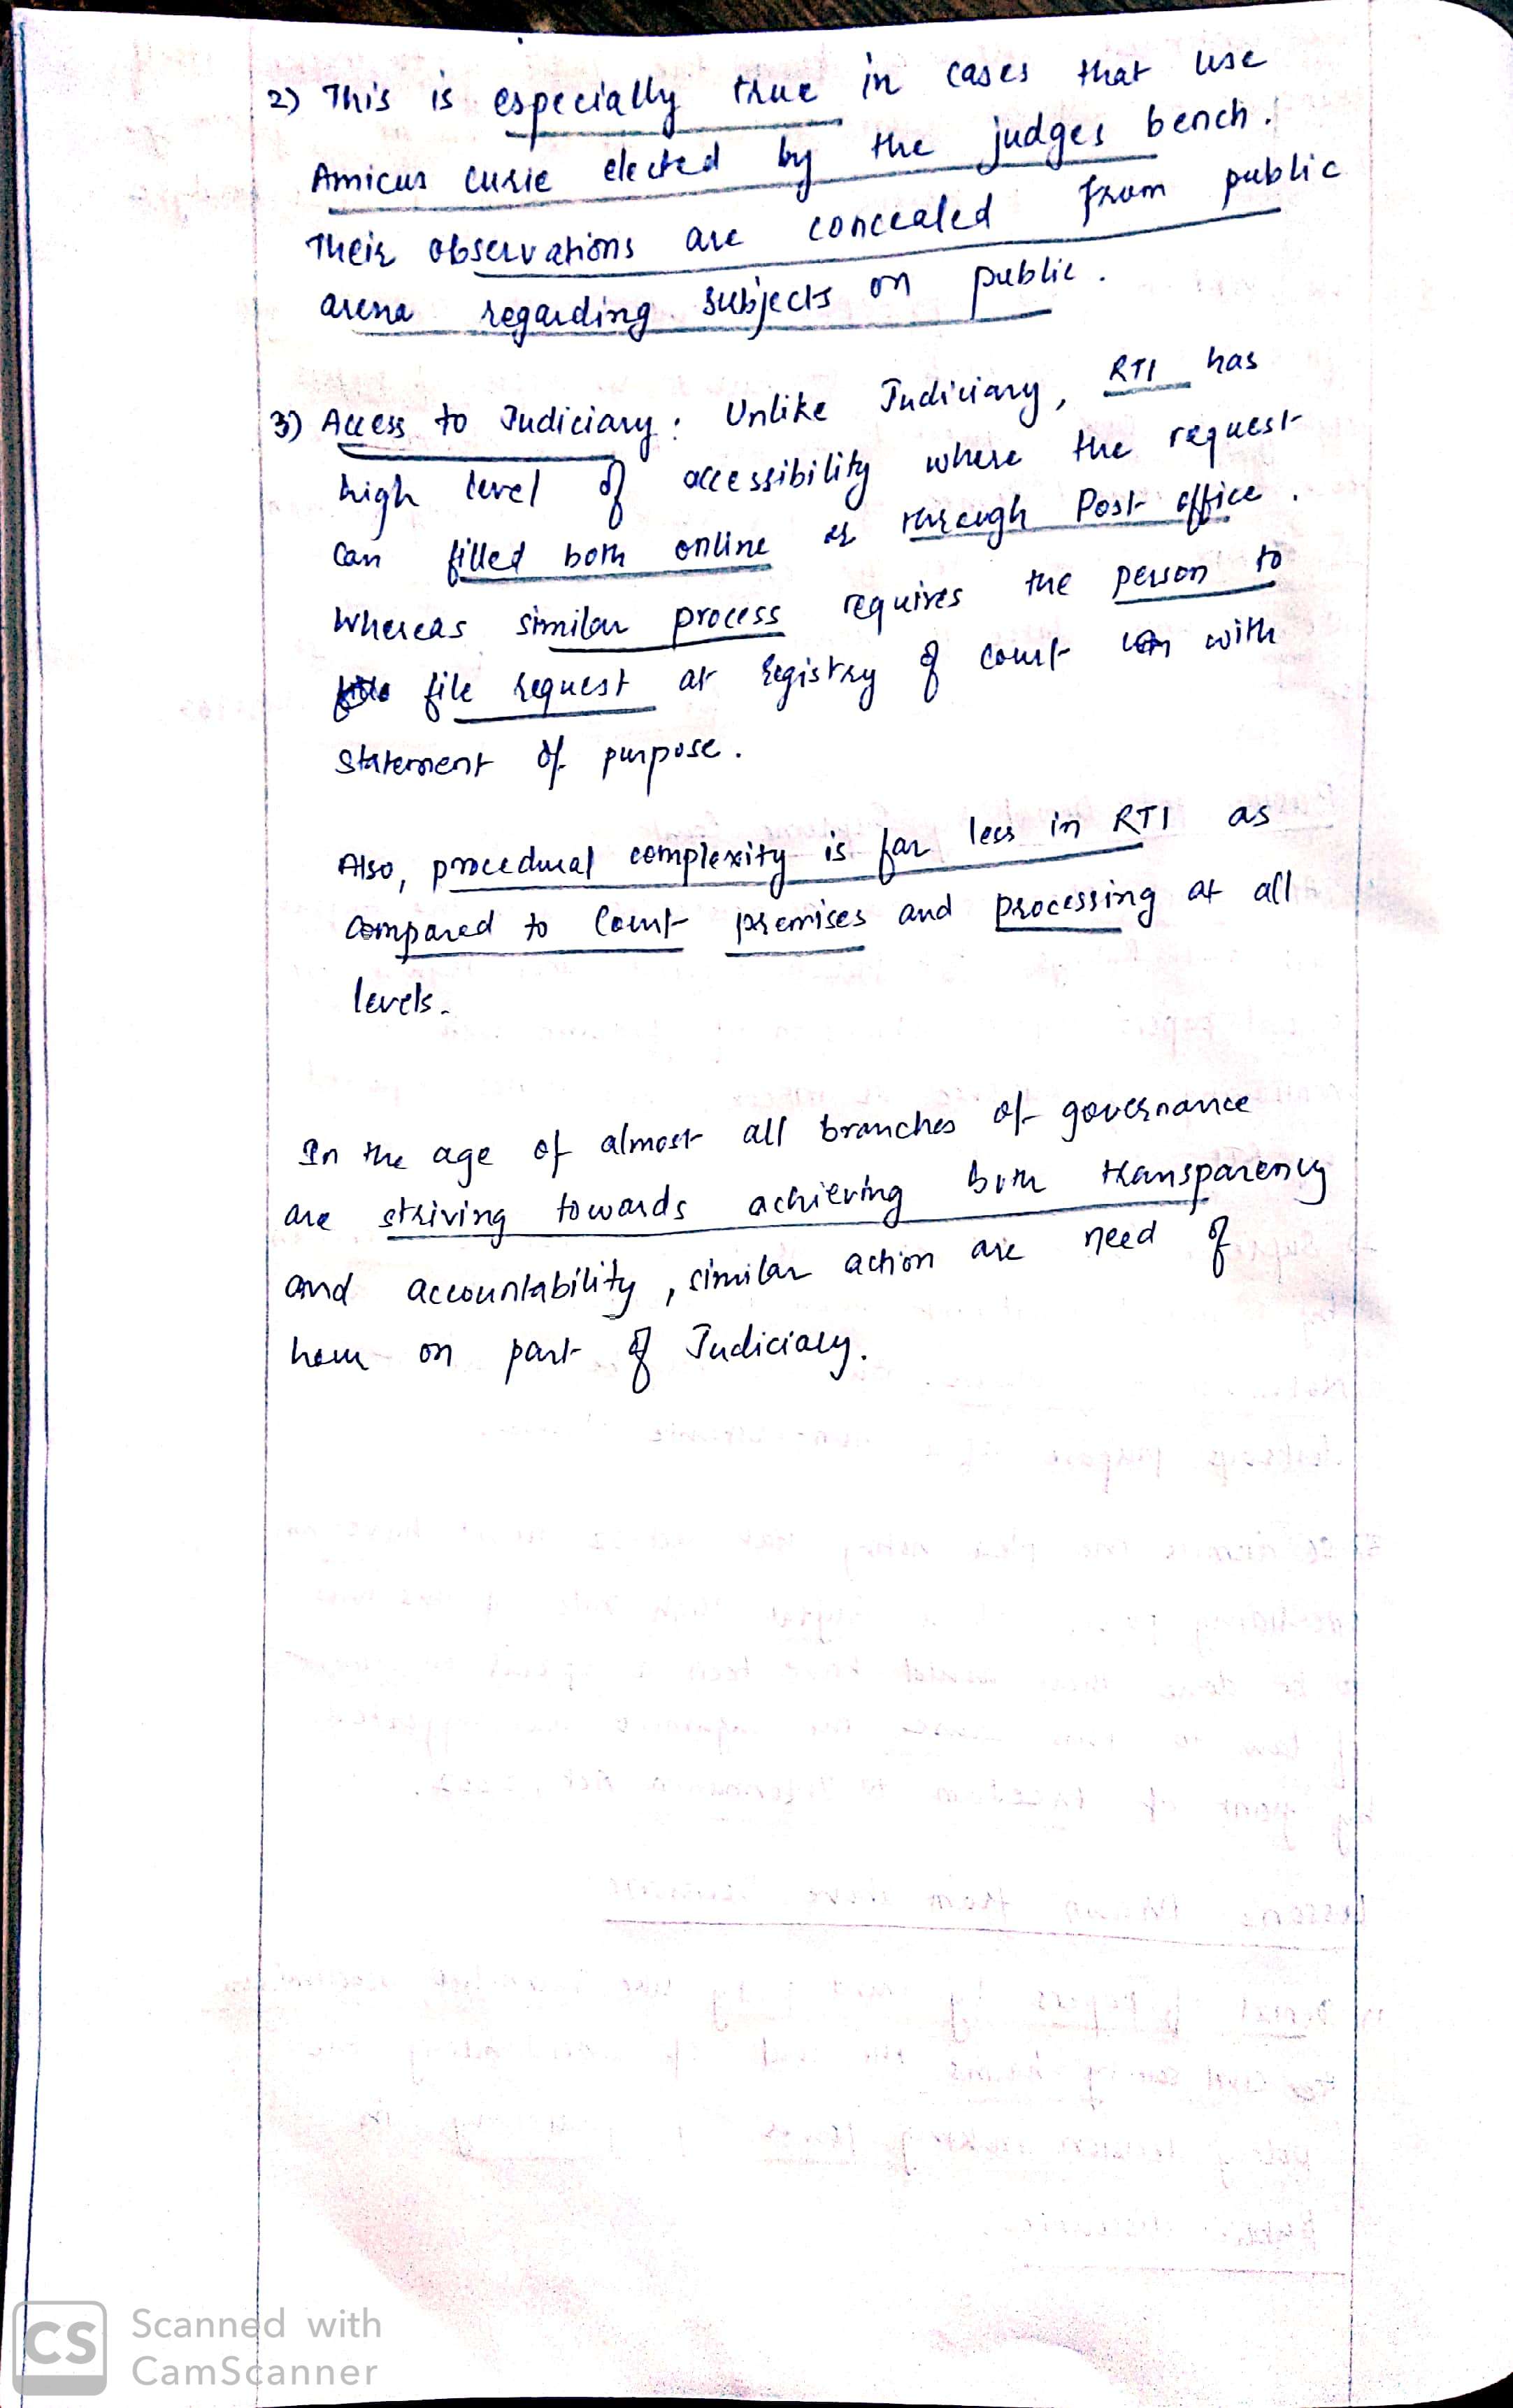 2) This is especially true in cases that use
Amicus curie elected by the judges bench.
Their observations are concealed from public
arena regarding subjects on public.
3) Access to Judiciary: Unlike Judiciary, RTI has
high level of accessibility where the request
can filled both online or through Post office.
Whereas similar process requires the person to
file request at registry of court with
statement of purpose.
Also, procedural complexity is far less in RTI as
compared to Court premises and processing at all
levels.
In the age of almost all branches of governance
are striving towards achieving both transparency
and accountability, similar action are need of
hour on part of Judiciary.
CS Scanned with
CamScanner